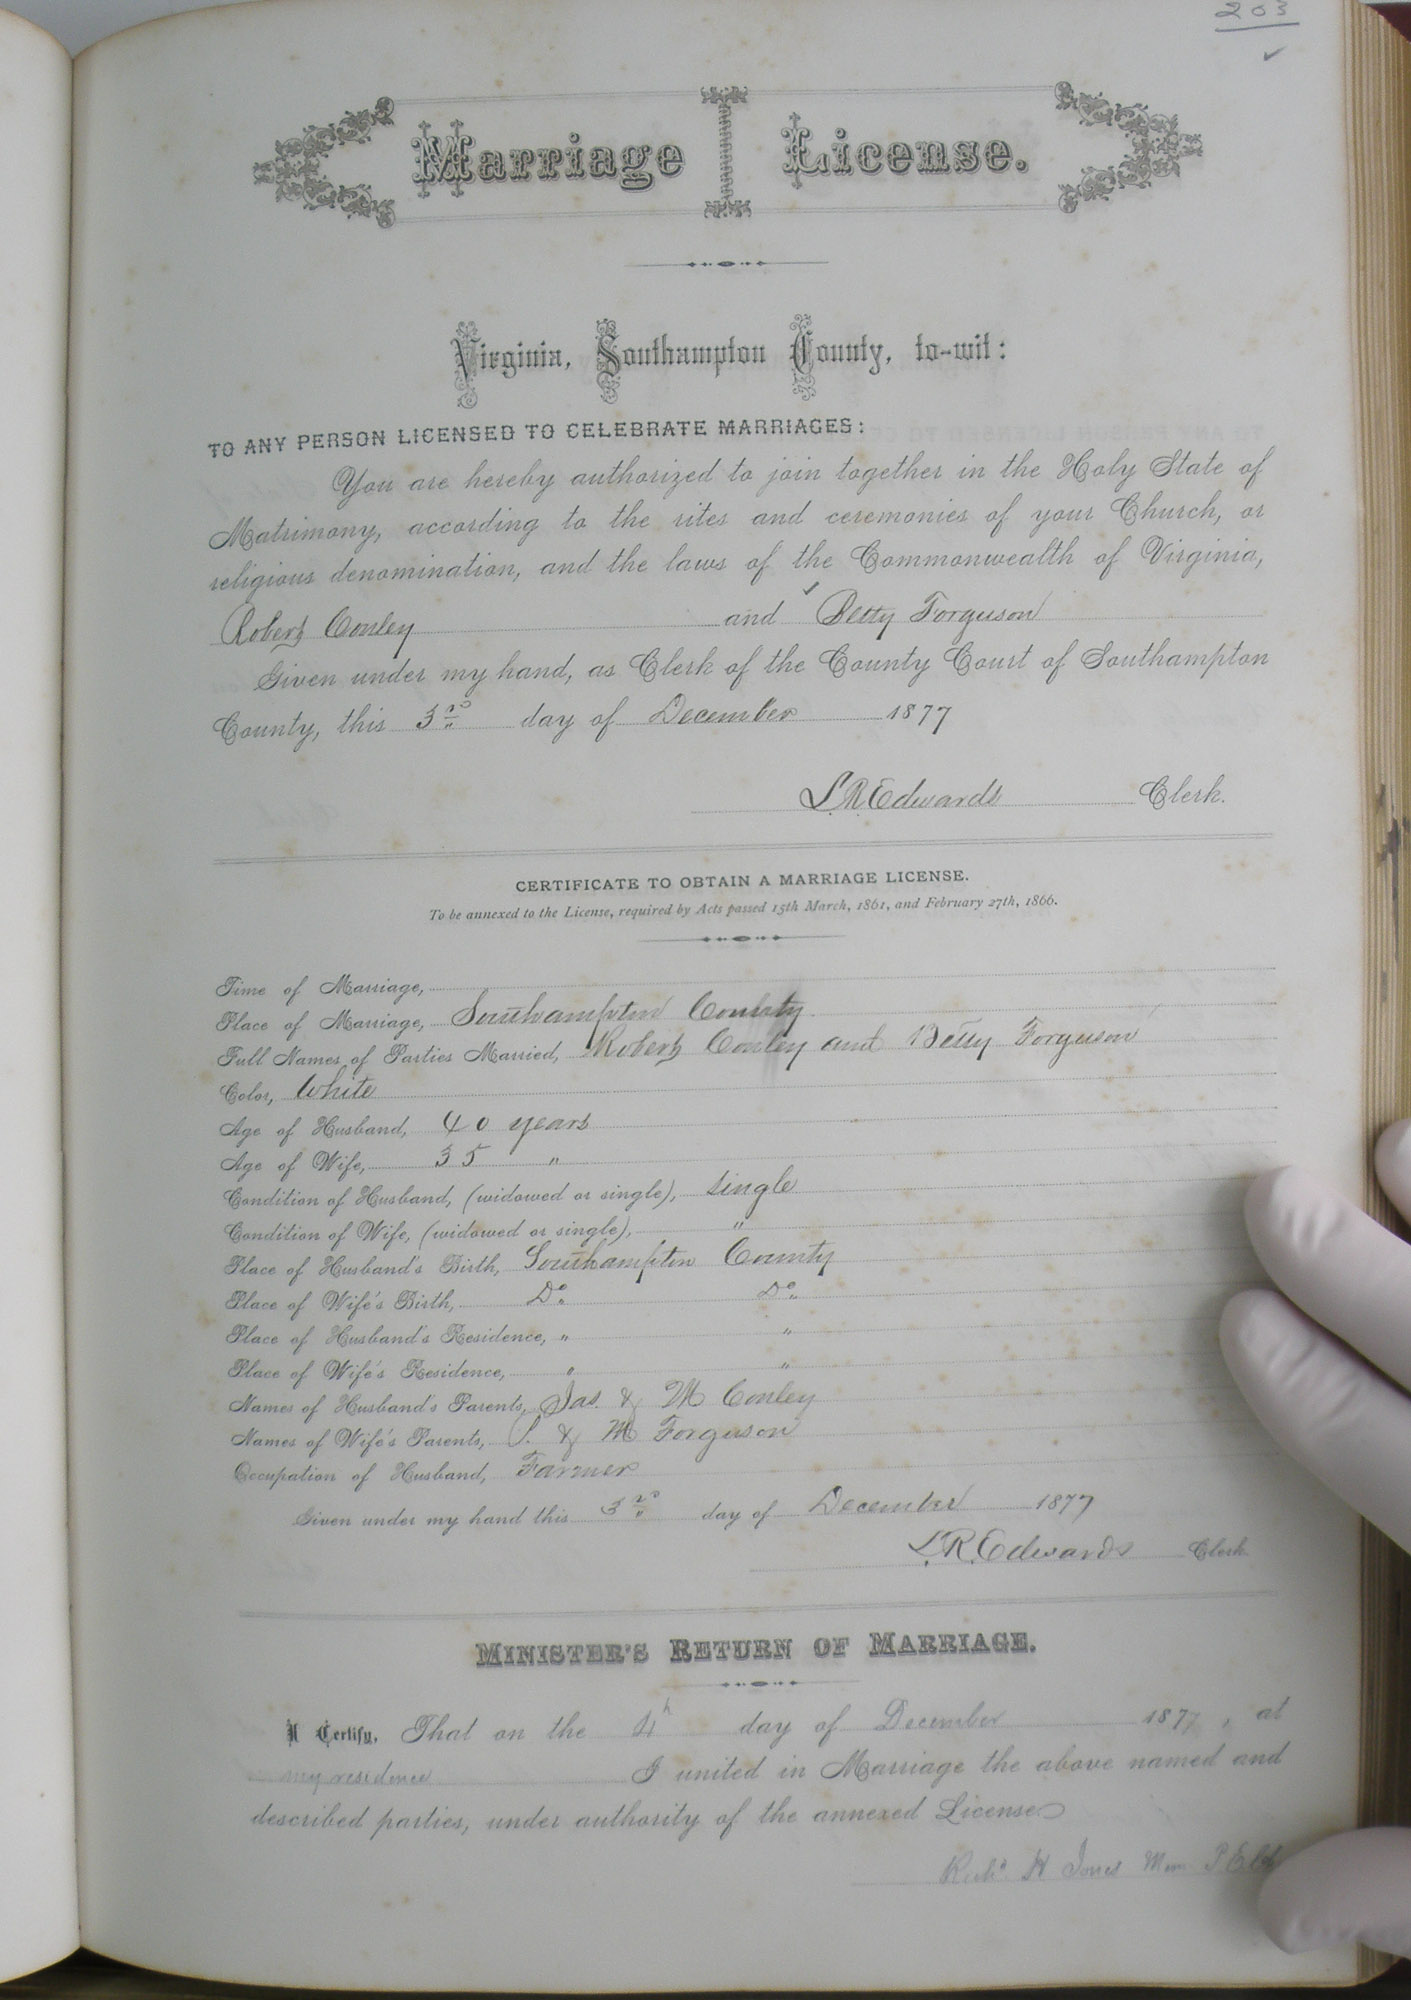 203
Marriage License.
Virginia, Southampton County, to-wit:
TO ANY PERSON LICENSED TO CELEBRATE MARRIAGES:
You are hereby authorized to join together in the Holy State of
Matrimony, according to the rites and ceremonies of your Church, or
religious denomination, and the laws of the Commonwealth of Virginia,
Robert Conley and Betty Forguson
Given under my hand, as Clerk of the County Court of Southampton
County, this 3rd day of December 1877
L.R. Edwards Clerk.
CERTIFICATE TO OBTAIN A MARRIAGE LICENSE.
To be annexed to the License, required by Acts passed 15th March, 1861, and February 27th, 1866.
Time of Marriage,
Place of Marriage, Southampton County
Full Names of Parties Married, Robert Conley and Betty Forguson
Color, White
Age of Husband, 40 years
Age of Wife, 35 "
Condition of Husband, (widowed or single), single
Condition of Wife, (widowed or single), "
Place of Husband's Birth, Southampton County
Place of Wife's Birth, Do. Do.
Place of Husband's Residence, " "
Place of Wife's Residence, " "
Names of Husband's Parents, Jas. & M Conley
Names of Wife's Parents, & M Forguson
Occupation of Husband, Farmer
Given under my hand this 3rd day of December 1877
L.R. Edwards Clerk
MINISTER'S RETURN OF MARRIAGE.
I Certify, That on the 4h day of December 1877, at
my residence I united in Marriage the above named and
described parties, under authority of the annexed License
Richd H Jones